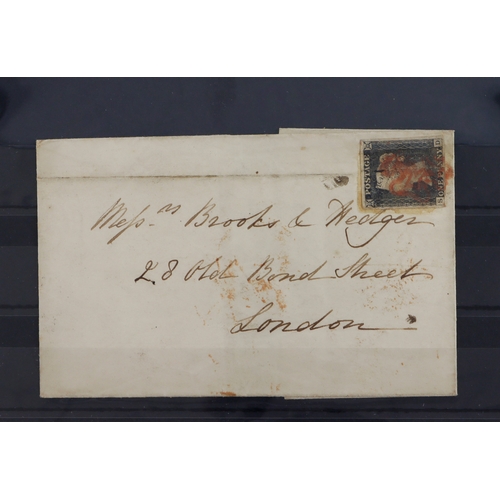 POSTAGE
Mess.rs Brooks & Hedger
28 Old Bond Street
London